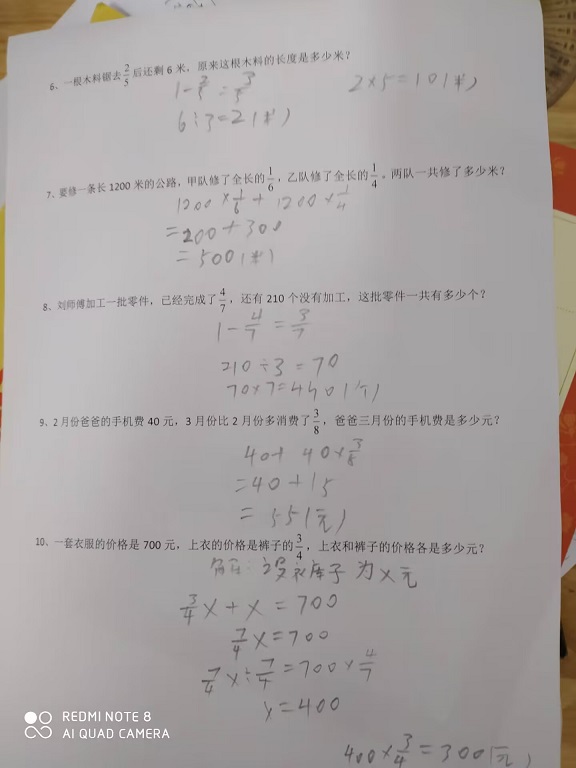 6、一根木料锯去2/5后还剩6米，原来这根木料的长度是多少米？
1-2/5=3/5 2×5=10(米)
6÷3=2(米)
7、要修一条长1200米的公路，甲队修了全长的1/6，乙队修了全长的1/4。两队一共修了多少米？
1200×1/6+1200×1/4
=200+300
=500(米)
8、刘师傅加工一批零件，已经完成了4/7，还有210个没有加工，这批零件一共有多少个？
1-4/7=3/7
210÷3=70
70×7=490(个)
9、2月份爸爸的手机费40元，3月份比2月份多消费了3/8，爸爸三月份的手机费是多少元？
40+40×3/8
=40+15
=55(元)
10、一套衣服的价格是700元，上衣的价格是裤子的3/4，上衣和裤子的价格各是多少元？
解：设裤子为x元
3/4x+x=700
7/4x=700
7/4x÷7/4=700×4/7
x=400
400×3/4=300(元)
REDMI NOTE 8
AI QUAD CAMERA